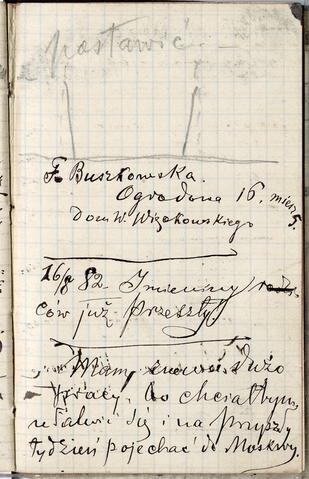 postawić.
F. Buszkowska.
Ogrodowa 16. miesz 5.
Dom W. Więckowskiego
16/8 82. Imieniny
ców już przeszły
Mam znowu dużo
pracy, bo chciałbym
się i na przyszły
tydzień pojechać do Moskwy.